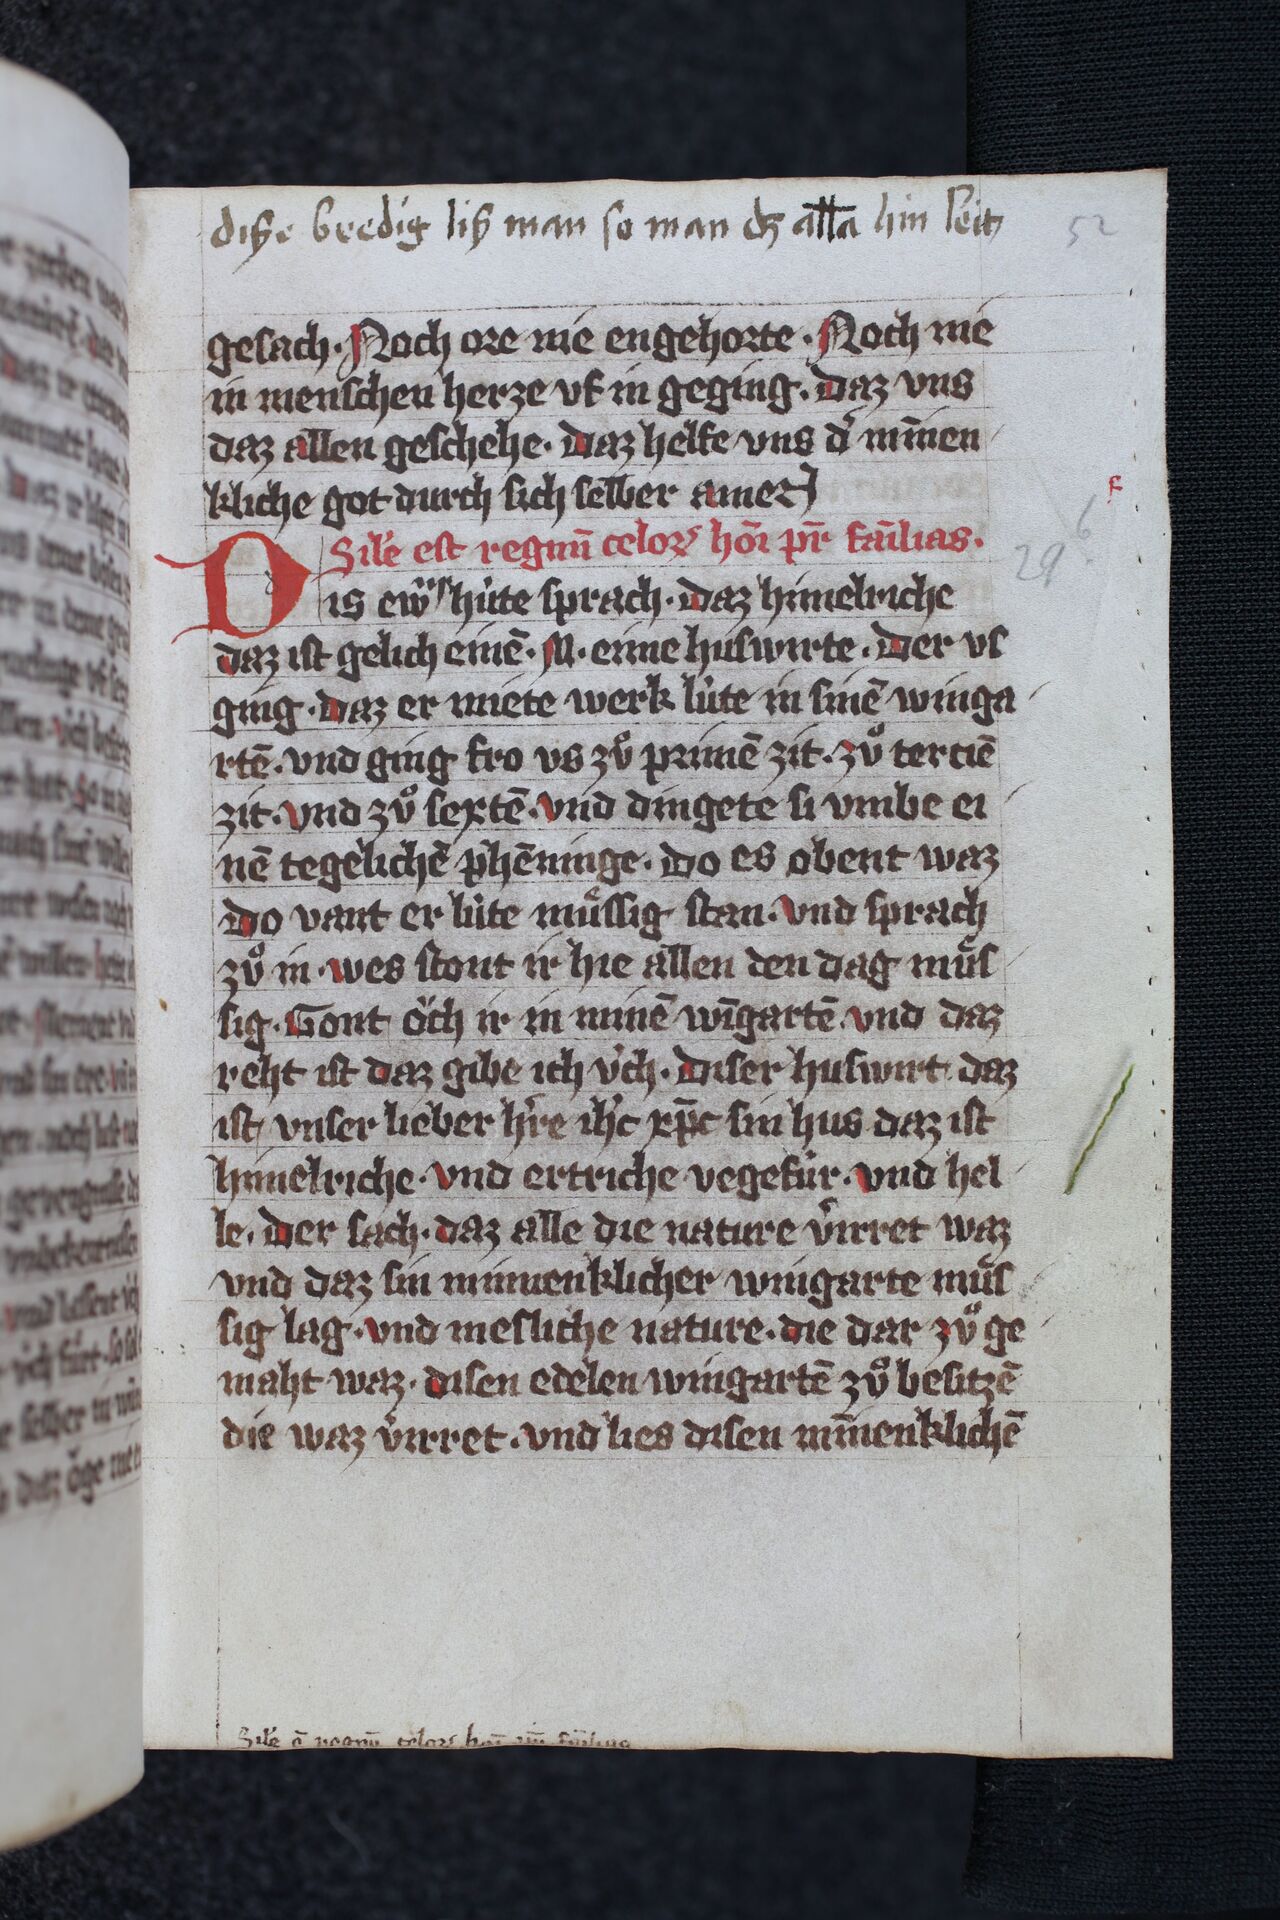 diße bredig liß man so man dz alla hin leit
52
gesach. Noch ore nie engehorte. Noch nie
in menschen herze vf in geging. Daz vns
daz allen geschehe. Daz helfe vns d' mīnen
kliche got durch sich selber amen
Sil'e est regnū celoꝝ hōi pr̄ fāilias.
29 6
Dis ew̄ húte sprach. Daz himelriche
daz ist gelich einē. M. eime huswirte. Der vs
ging. daz er miete werk lúte in sinē winga
rtē. vnd ging fro vs zů primē zit. zů terciē
zit. vnd zů sextē. vnd dingete si vmbe ei
nē tegelichē phēninge. Do es obent waz
Do vant er lúte můssig stan. vnd sprach
zů in. wes stont ir hie allen den dag můs
sig. Gont öch ir in minē wīgartē. vnd daz
reht ist daz gibe ich v́ch. Diser huswirt daz
ist vnser lieber h're ih'c xp̄c sin hus daz ist
himelriche. vnd ertriche vegefúr. vnd hel
le. Der sach. daz alle die nature v'irret waz
vnd daz sin minnenklicher wingarte můs
sig lag. vnd mesliche nature. die dar zů ge
maht waz. disen edelen wingartē zů besitzē
die waz v'irret. vnd lies disen mīnenklichē
Sil'e ē regnū celoꝝ